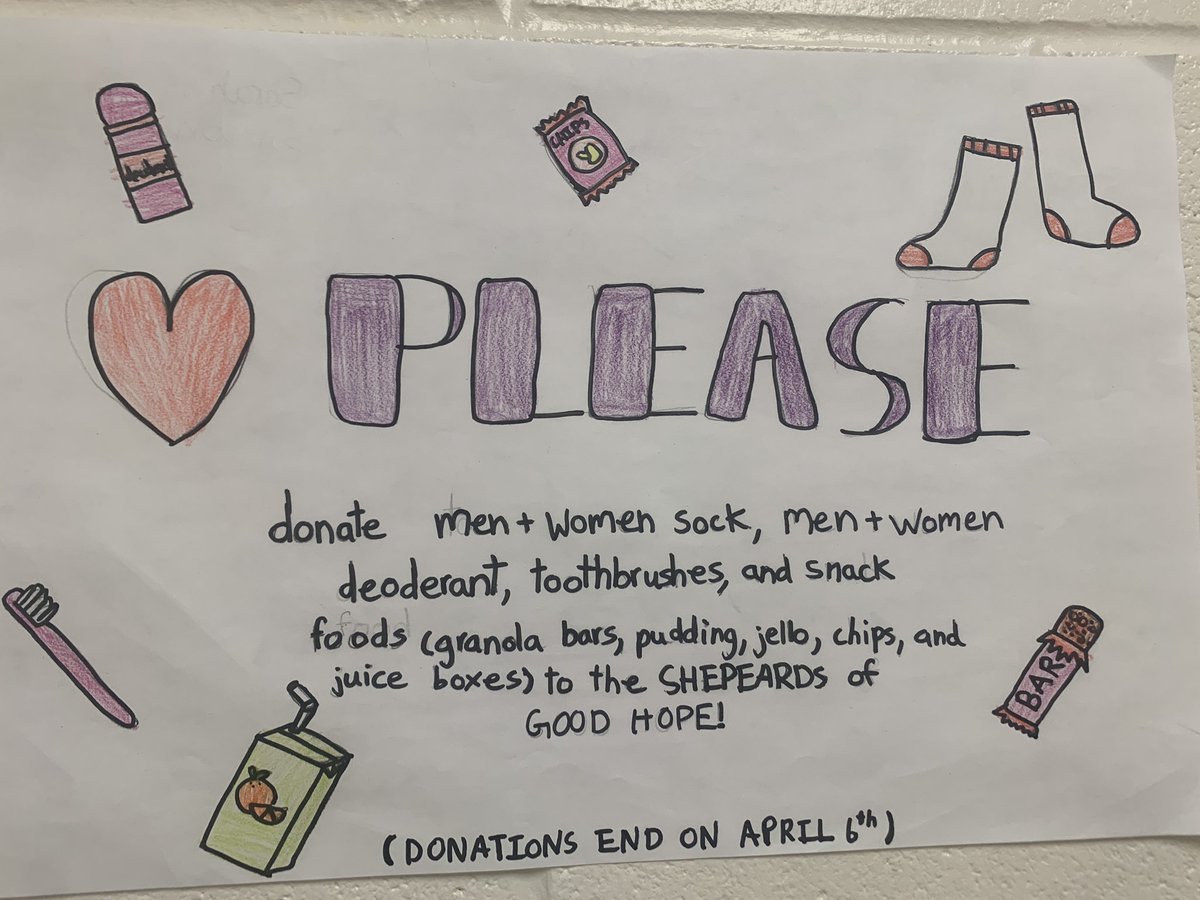 CHIPS
PLEASE
donate men + women sock, men + women
deoderant, toothbrushes, and snack
foods (granola bars, pudding, jello, chips, and
juice boxes) to the SHEPEARDS of
GOOD HOPE!
BAR
(DONATIONS END ON APRIL 6th)